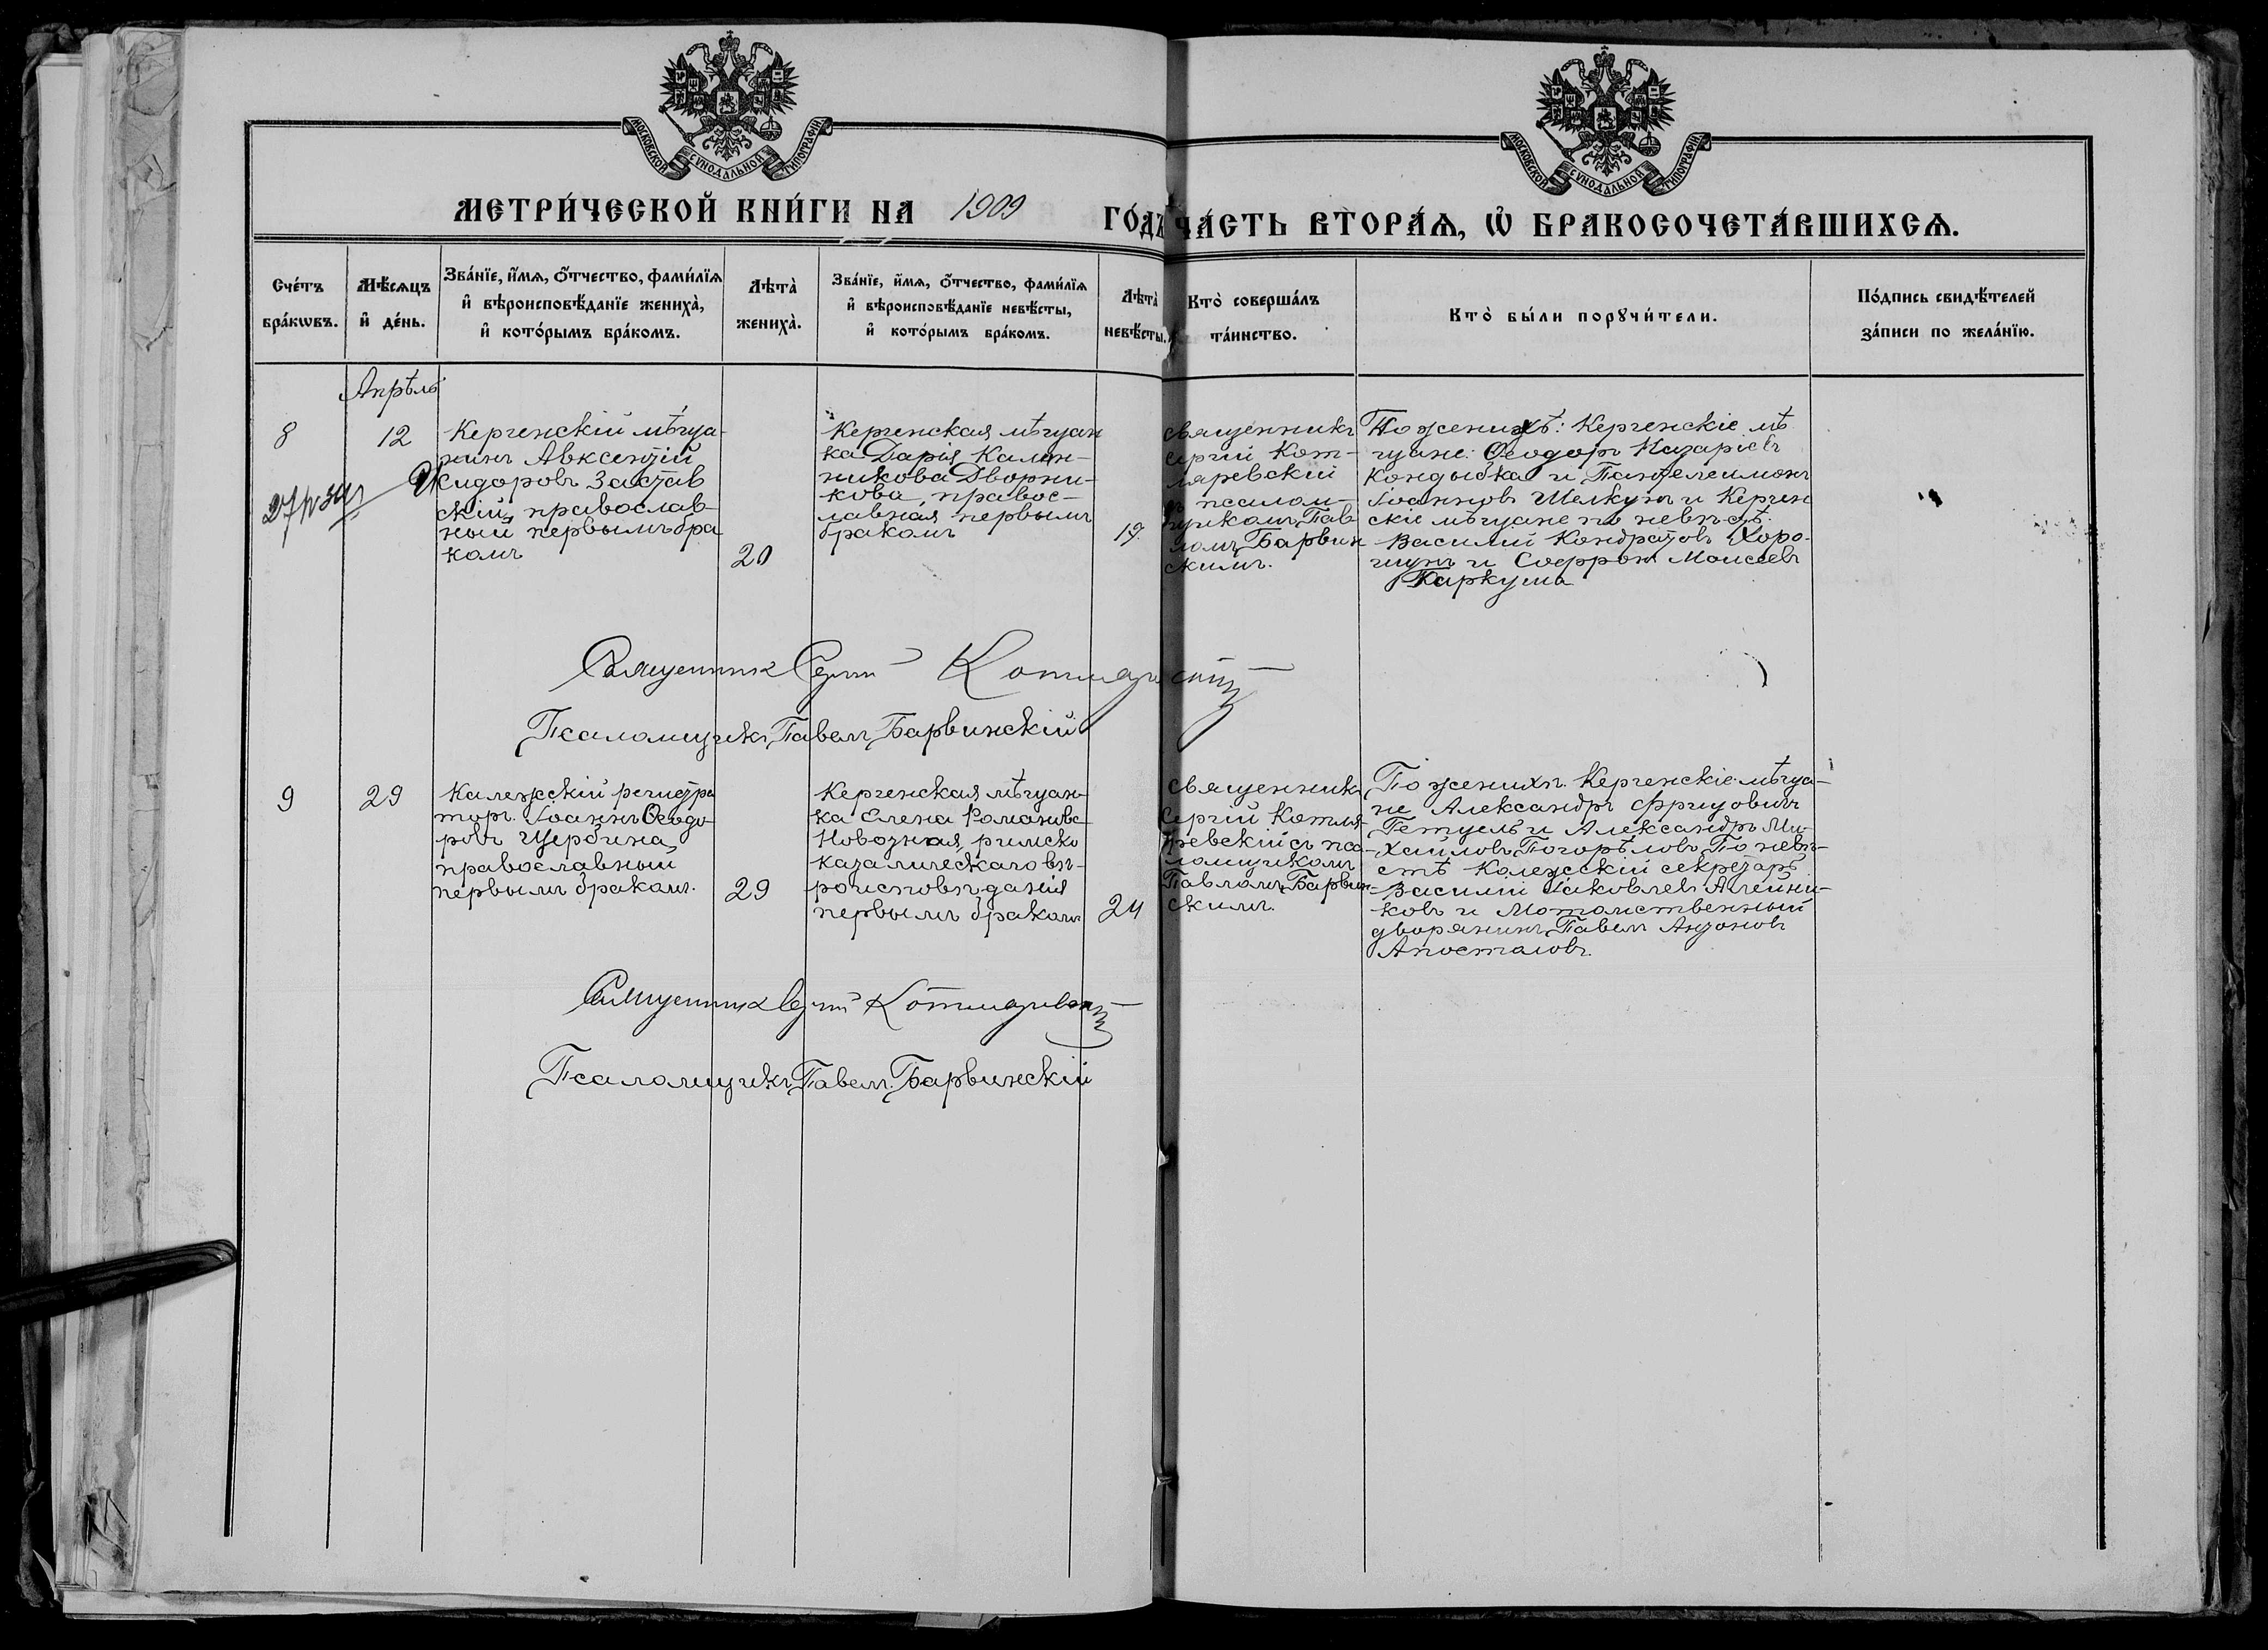 МОСКОВСКОЙ СѴНОДАЛЬНОЙ ТИПОГРАФІИ
МОСКОВСКОЙ СѴНОДАЛЬНОЙ ТИПОГРАФІИ
МЕТРИ́ЧЕСКОЙ КНИ́ГИ НА 1909 ГО́ДЪ
ЧА́СТЬ ВТОРА́Ѧ, Ѽ БРАКОСОЧЕТА́ВШИХСѦ.
Сче́тъ
бра́кѡвъ.
Мѣ́сѧцъ
и҆ де́нь.
Зва́нїе, и҆́мѧ, ѻ҆́тчество, фами́лїѧ
и҆ вѣроисповѣ́данїе жениха̀,
и҆ кото́рымъ бра́комъ.
Лѣта̀
жениха̀.
Зва́нїе, и҆́мѧ, ѻ҆́тчество, фами́лїѧ
и҆ вѣроисповѣ́данїе невѣ́сты,
и҆ кото́рымъ бра́комъ.
Лѣта̀
невѣ́сты.
Кто̀ соверша́лъ
та́инство.
Кто̀ бы́ли порꙋчи́тели.
По́дпись свидѣ́телей
за́писи по жела́нїю.
Апрѣль
8
12
Керченскій мѣща-
нинъ Авксентій
Исидоровъ Застав
скій, православ-
ный первымъ бра
комъ
20
Керченская мѣщан
ка Дарія Калин-
никова Дворни-
кова, правос-
лавная первымъ
бракомъ
19
священникъ
Сергій Кот-
ляревскій
съ псалом-
щикомъ Пав
ломъ Барвин
скимъ.
По женихѣ: Керченскіе мѣ
щане: Ѳеодоръ Назаріевъ
Кондыбка и Пантелеимонъ
Іоанновъ Шелкунъ и Керчен
скіе мѣщане по невѣстѣ.
Василій Кондратовъ Хоро-
шунъ и Софрон Моисеевъ
Паркума
Священник Сергій Котляревскій
Псаломщикъ Павелъ Барвинскій
9
29
Калежскій регистра
торъ. Іоаннъ Ѳеодо
ровъ Щербина
православный
первымъ бракомъ.
29
Керченская мѣщан-
ка Елена Романовс-
Новозная, римско
католическаго вѣ-
роисповѣданія
первымъ бракомъ
24
священникъ
Сергій Котля-
ревскій съ пса-
ломщикомъ
Павломъ Барвин-
скимъ.
По женихѣ. Керченскіе мѣща-
не Александръ Фрицовичъ
Гетцель и Александръ Ми-
хайловъ Погорѣловъ По невѣ-
стѣ Колежскій секретарь
Василій Іаковлевъ Алейни-
ковъ и Мотомственный
дворянинъ Павелъ Антоновъ
Апосталовъ.
Священник Сергій Котляревскій
Псаломщикъ Павелъ Барвинскій